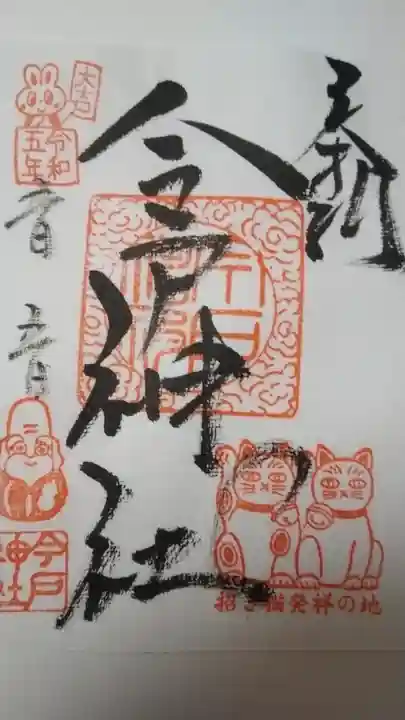 奉拝
今戸神社
大吉
令和
五年
音
音
今戸
神社
今戸
神社
招き猫発祥の地